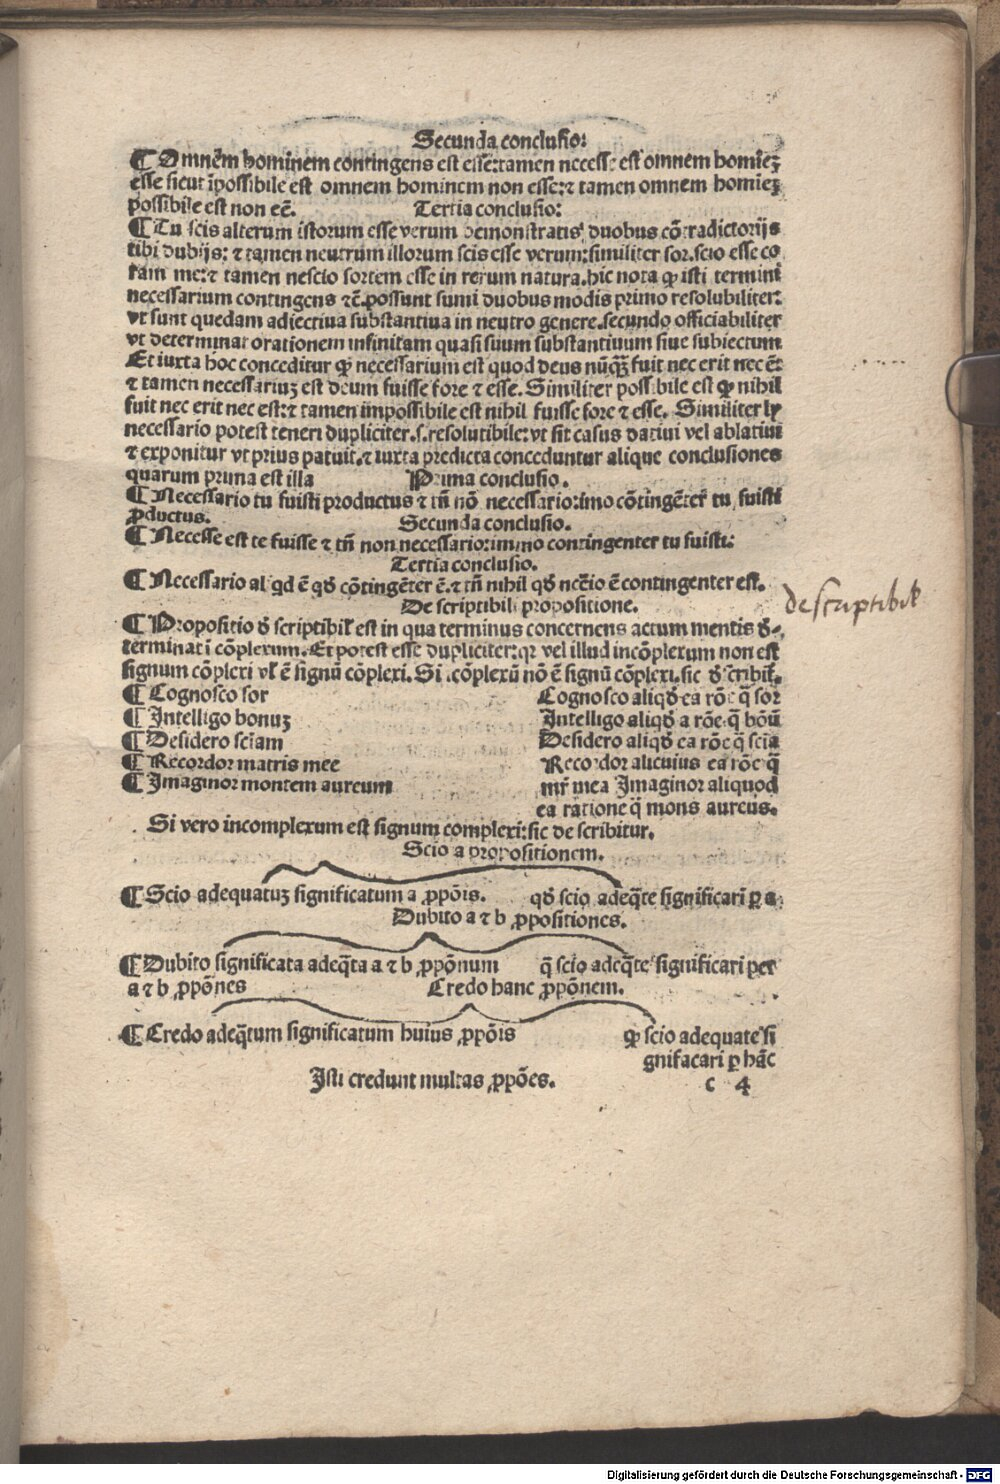 Secunda conclusio:
¶ Omnem hominem contingens est esse: tamen necesse est omnem homiēꝫ
esse sicut īpossibile est omnem hominem non esse: ⁊ tamen omnem homiēꝫ
possibile est non eē. Tertia conclusio:
¶ Tu scis alterum istorum esse verum demonstratis duobus cōtradictorijs
tibi dubijs: ⁊ tamen neutrum illorum scis esse verum: similiter sor. scio esse co
ram me: ⁊ tamen nescio sortem esse in rerum natura. hic nota ꝙ isti termini
necessarium contingens ⁊c̄. possunt sumi duobus modis primo resolubiliter:
vt sunt quedam adiectiua substantiua in neutro genere. secundo officiabiliter
vt determinat orationem infinitam quasi suum substantiuum siue subiectum
Et iuxta hoc conceditur ꝙ necessarium est quod deus nūꝗꝫ fuit nec erit nec ē:
⁊ tamen necessariuꝫ est deum fuisse fore ⁊ esse. Similiter possibile est ꝙ nihil
fuit nec erit nec est: ⁊ tamen impossibile est nihil fuisse fore ⁊ esse. Similiter lꝫ
necessario potest teneri dupliciter. s. resolutibile: vt sit casus datiui vel ablatiui
⁊ exponitur vt prius patuit. ⁊ iuxta predicta conceduntur alique conclusiones
quarum prima est illa Prima conclusio.
¶ Necessario tu fuisti productus ⁊ tn̄ nō necessario: imo cōtingēter tu fuisti
ꝓductus. Secunda conclusio.
¶ Necesse est te fuisse ⁊ tn̄ non necessario: immo contingenter tu fuisti:
Tertia conclusio.
¶ Necessario alqd ē qđ cōtingēter ē. ⁊ tn̄ nihil qđ nccīo ē contingenter est.
De scriptibili propositione.
descriptibil
¶ Propositio đ scriptibil' est in qua terminus concernens actum mentis đ-
terminat ī cōplexum. Et potest esse dupliciter: qꝛ vel illud incōplexum non est
signum cōplexi vl' ē signū cōplexi. Si īcōplexū nō ē signū cōplexi. sic đ scribit̄.
¶ Cognosco sor Cognosco aliqđ ea rōe q̄ sor
¶ Intelligo bonuꝫ Intelligo aliqđ a rōe q̄ bōū
¶ Desidero sciam Desidero aliqđ ea rōe q̄ scīa
¶ Recordor matris mee Recordor alicuius ea rōe q̄
¶ Imaginor montem aureum mr̄ mea Imaginor aliquod
ea ratione q̄ mons aureus.
Si vero incomplexum est signum complexi: sic de scribitur.
Scio a propositionem.
¶ Scio adequatuꝫ significatum a ꝓpōis. qđ scio adeq̄te significari ꝑ a
Dubito a ⁊ b ꝓpositiones.
¶ Dubito significata adeq̄ta a ⁊ b ꝓpōnum q̄ scio adeq̄te significari per
a ⁊ b ꝓpōnes Credo hanc ꝓpōnem.
¶ Credo adeq̄tum significatum huius ꝓpōis ꝙ scio adequate si
gnifacari ꝑ hāc
Isti credunt multas ꝓpōes.
c 4
Digitalisierung gefördert durch die Deutsche Forschungsgemeinschaft - DFG